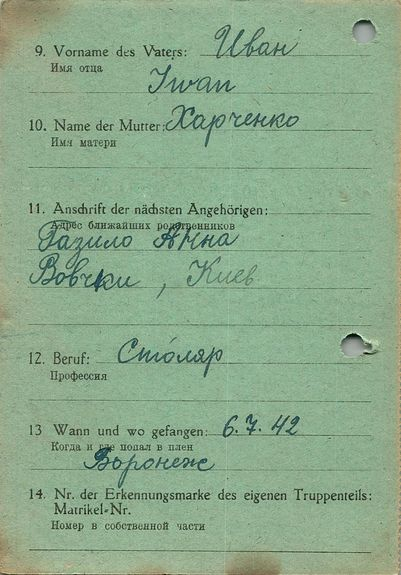 9. Vorname des Vaters: Иван
Имя отца
Iwan
10. Name der Mutter: Харченко
Имя матери
11. Anschrift der nächsten Angehörigen:
Адрес ближайших родственников
Газило Анна
Вовчки, Киев
12. Beruf: Столяр
Профессия
13 Wann und wo gefangen: 6.7.42
Когда и где попал в плен
Воронеж
14. Nr. der Erkennungsmarke des eigenen Truppenteils:
Matrikel-Nr.
Номер в собственной части